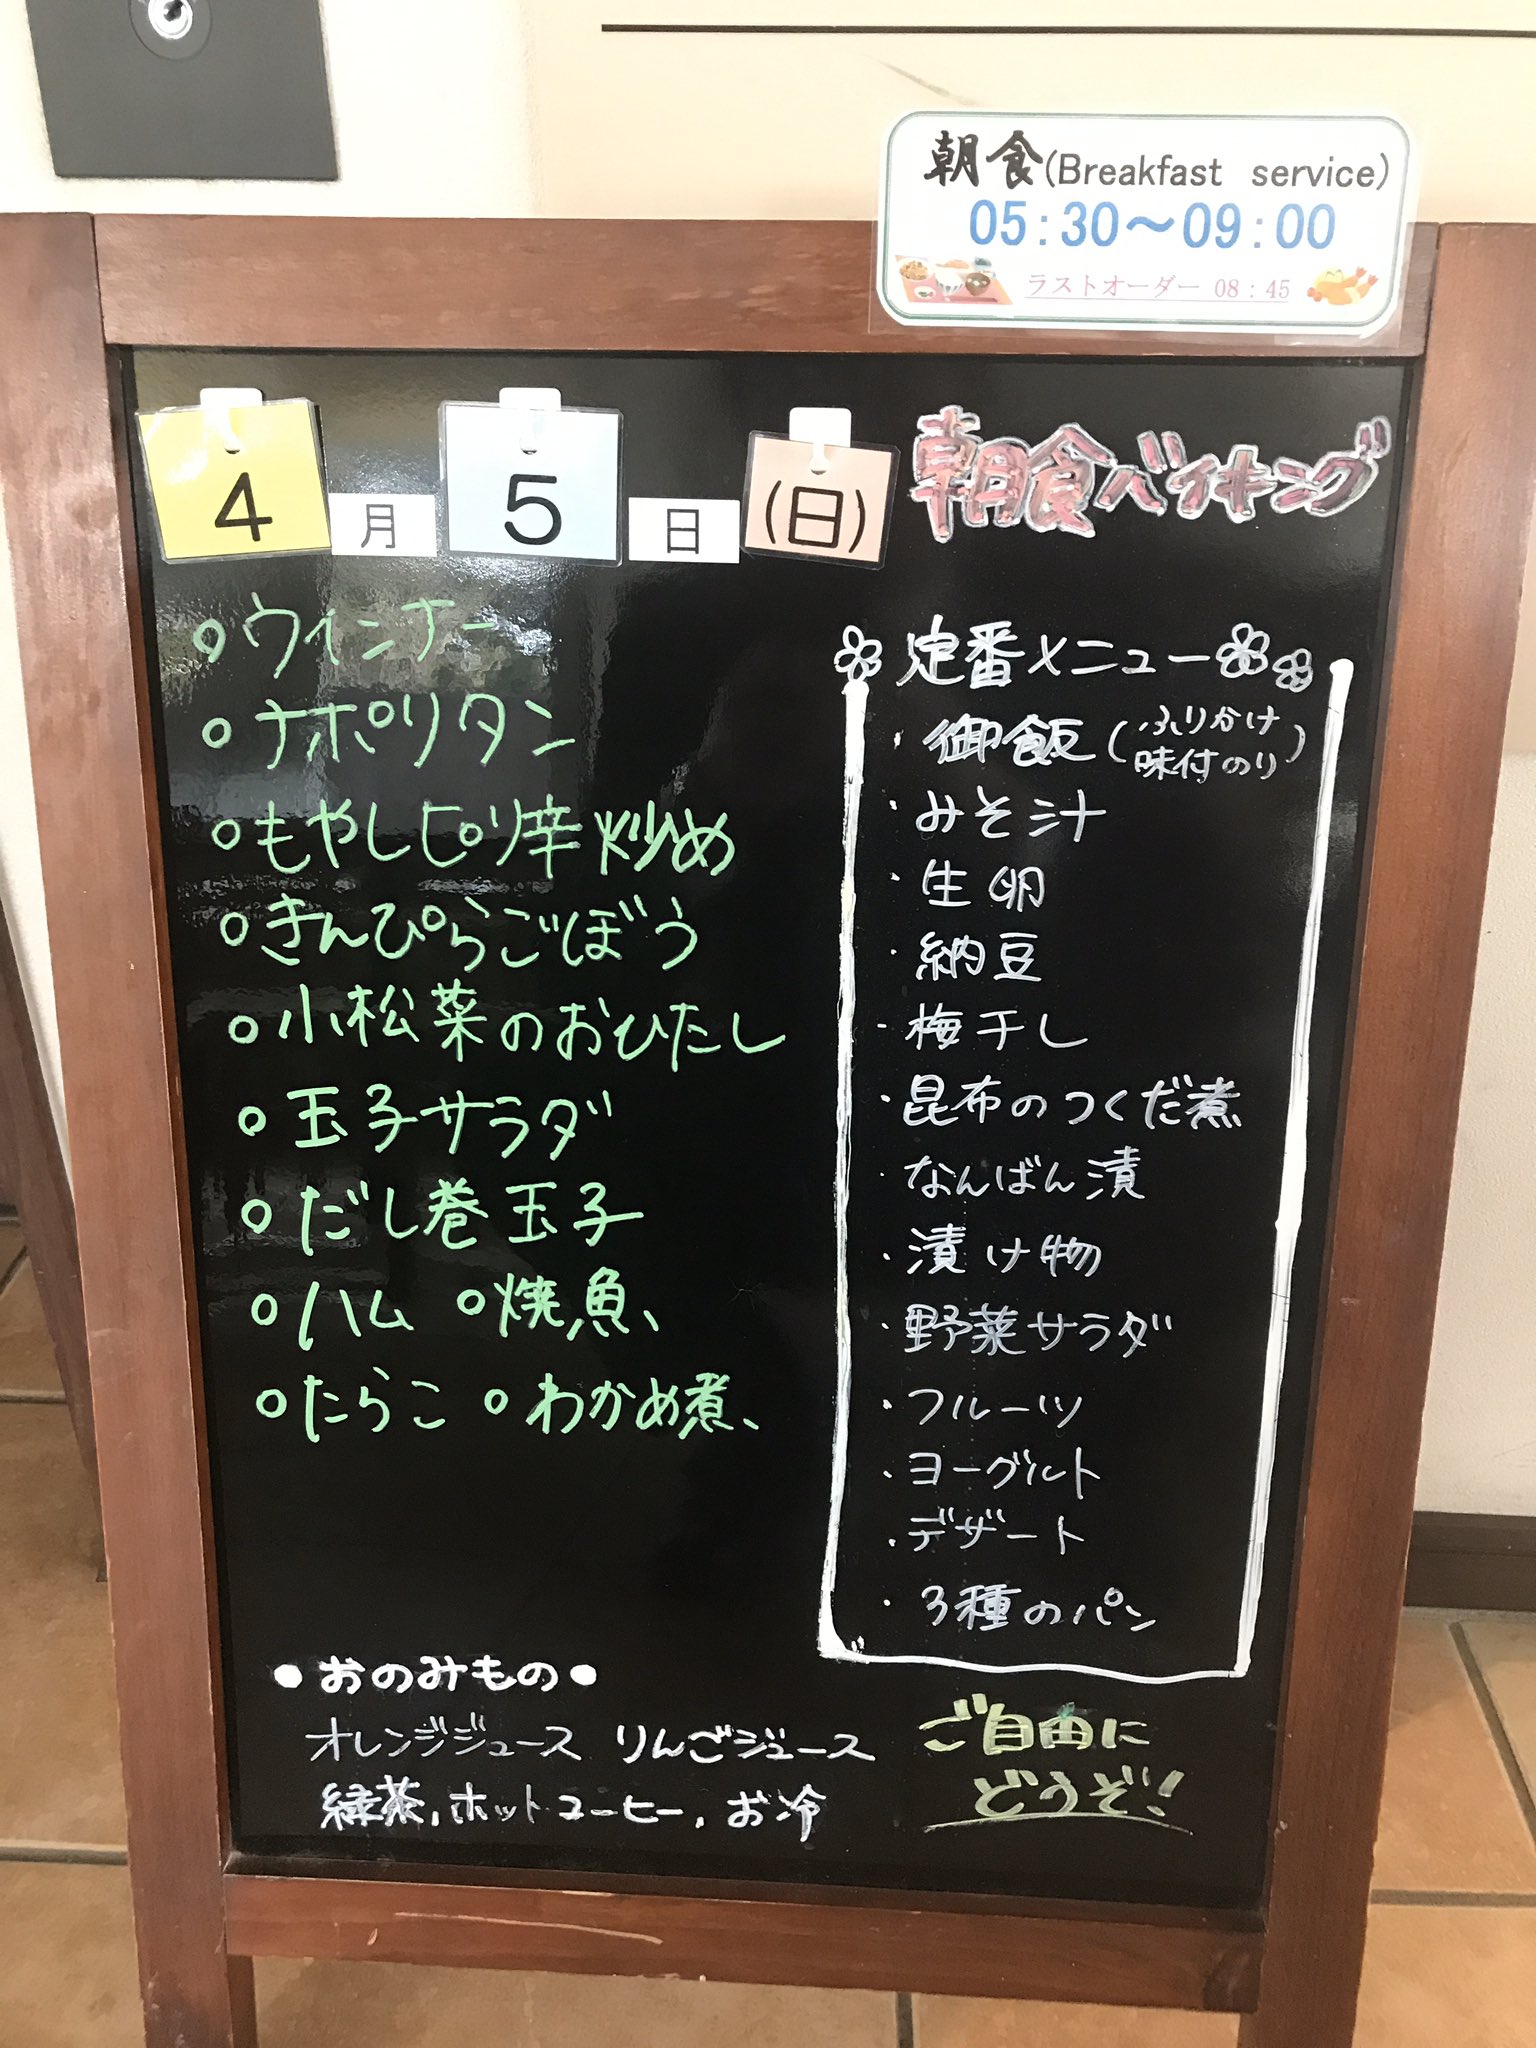 朝食(Breakfast service)
05:30～09:00
ラストオーダー 08:45
4月5日(日)
朝食バイキング
。ウインナー
。ナポリタン
。もやしピリ辛炒め
。きんぴらごぼう
。小松菜のおひたし
。玉子サラダ
。だし巻玉子
。ハム 。焼魚、
。たらこ 。わかめ煮、
定番メニュー
・御飯(ふりかけ
味付のり)
・みそ汁
・生卵
・納豆
・梅干し
・昆布のつくだ煮
・なんばん漬
・漬け物
・野菜サラダ
・フルーツ
・ヨーグルト
・デザート
・3種のパン
●おのみもの●
オレンジジュース りんごジュース
緑茶,ホットコーヒー,お冷
ご自由に
どうぞ!